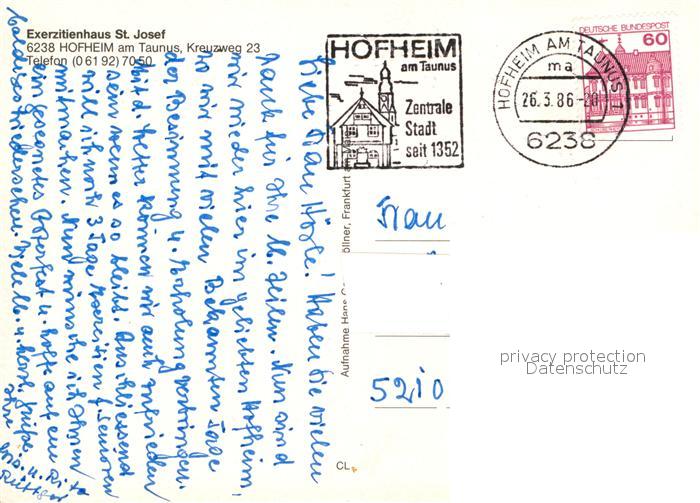 Exerzitienhaus St. Josef
6238 HOFHEIM am Taunus, Kreuzweg 23
Telefon (0 61 92) 70 50
HOFHEIM
am Taunus
Zentrale
Stadt
seit 1352
HOFHEIM AM TAUNUS 1
ma
26.3.86-20
6238
DEUTSCHE BUNDESPOST
60
Liebe Frau Högle! Haben Sie vielen
Dank für Ihre lb. Zeilen. Nun sind
wir wieder hier im geliebten Hofheim,
wo wir mit vielen Bekannten Tage
der Besinnung u. Erholung verbringen.
Mit d. Wetter können wir auch zufrieden
sein wenn es so bleibt. Anschliessend
will ich noch 3 Tage Exerzitien f. Senioren
mitmachen. Nun wünsche ich Ihnen
ein gesegnetes Osterfest u. hoffe auf ein
baldiges Wiedersehen. Viele lb. u. herzl. Grüße
Ihre
u. Rita
Aufnahme Hans
öllner, Frankfurt a
Frau
5210
CL
privacy protection
Datenschutz